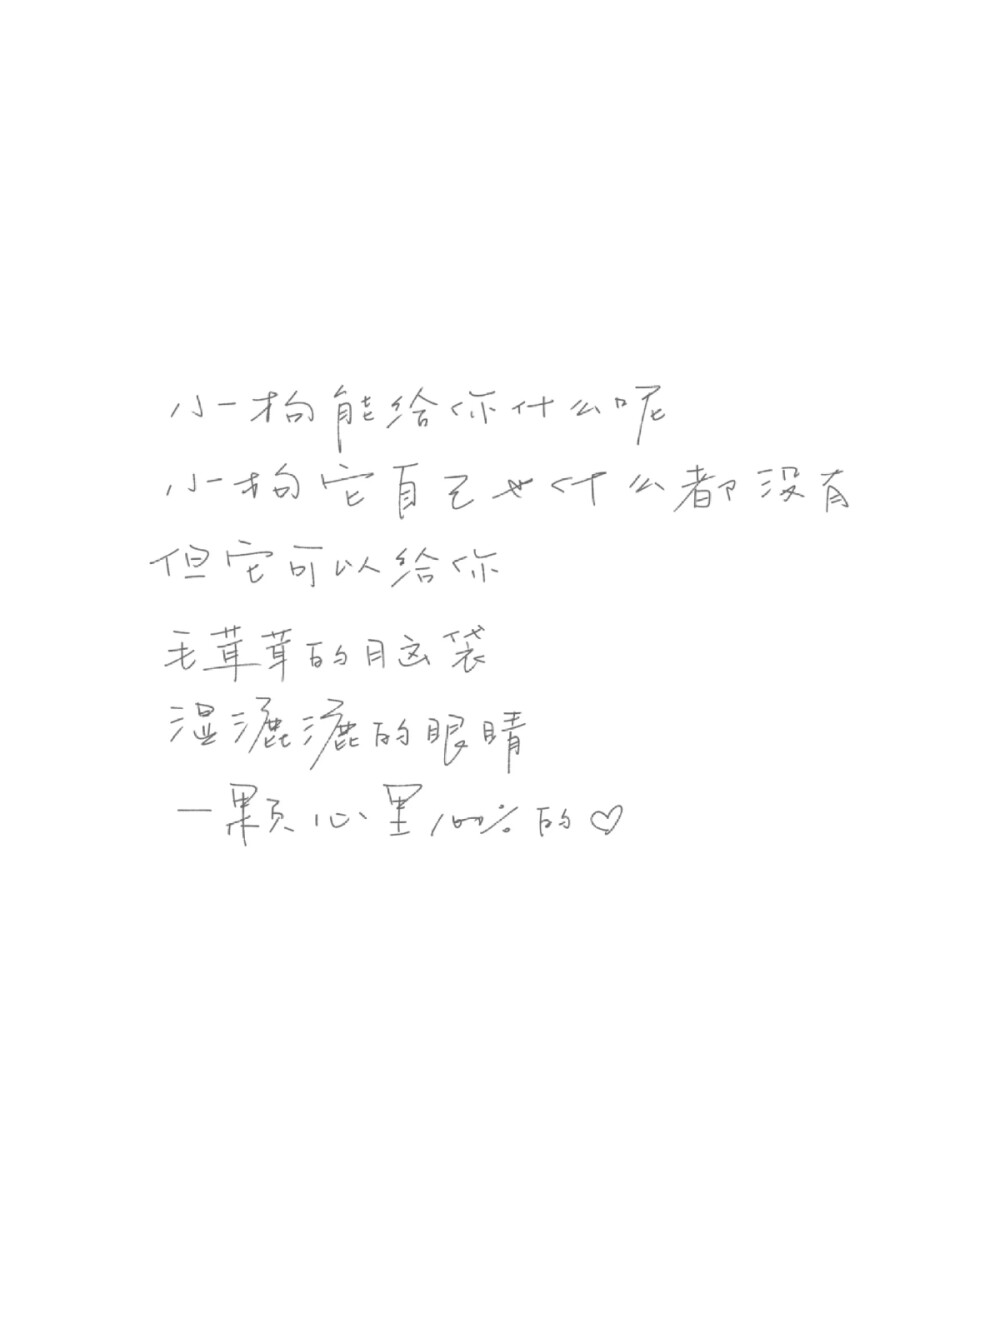 小狗能给你什么呢
小狗它自己也什么都没有
但它可以给你
毛茸茸的脑袋
湿漉漉的眼睛
一颗心里100%的♡